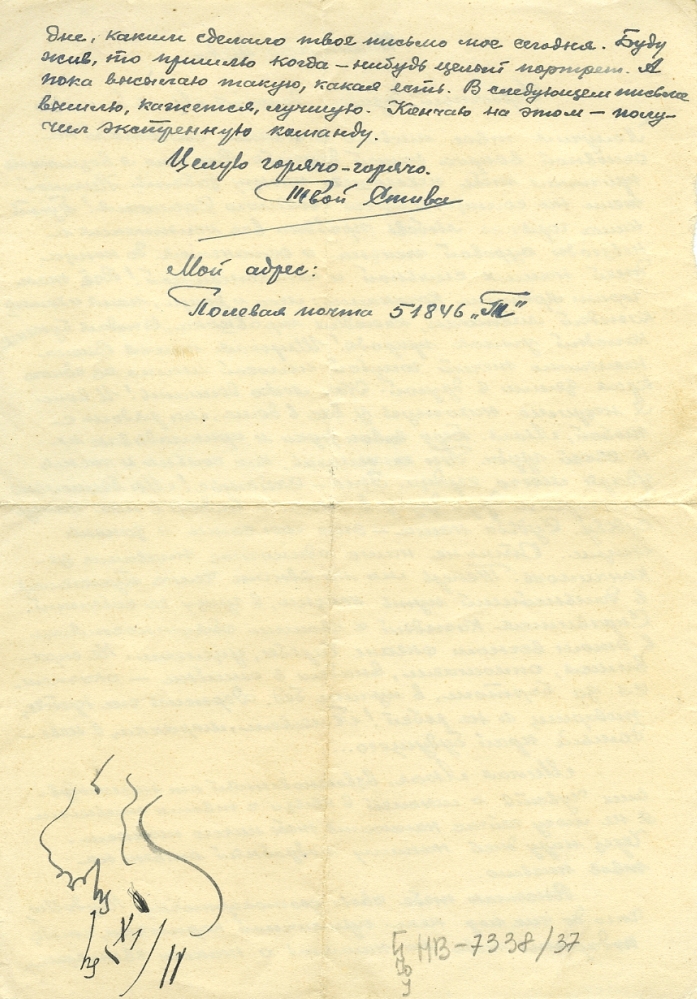 дне, каким сделало твое письмо мое сегодня. Буду
жив, то пришлю когда-нибудь целый портрет. А
пока высылаю такую, какая есть. В следующем письме
вышлю, кажется, лучшую. Кончаю на этом – полу-
чил экстренную команду.
Целую горячо-горячо.
Твой Стива
Мой адрес:
Полевая почта 51846 „Т"
НВ-7338/37